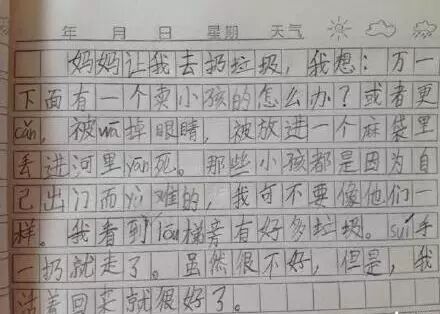 年 月 日 星期 天气
妈妈让我去扔垃圾，我想：万一
下面有一个卖小孩的怎么办？或者更
cǎn，被wā掉眼睛，被放进一个麻袋里
丢进河里yān死。那些小孩都是因为自
己出门而 难的，我可不要像他们一
样。我看到lóu梯旁有好多垃圾。suí手
一扔就走了。虽然很不好，但是，我
活着回来就很好了。